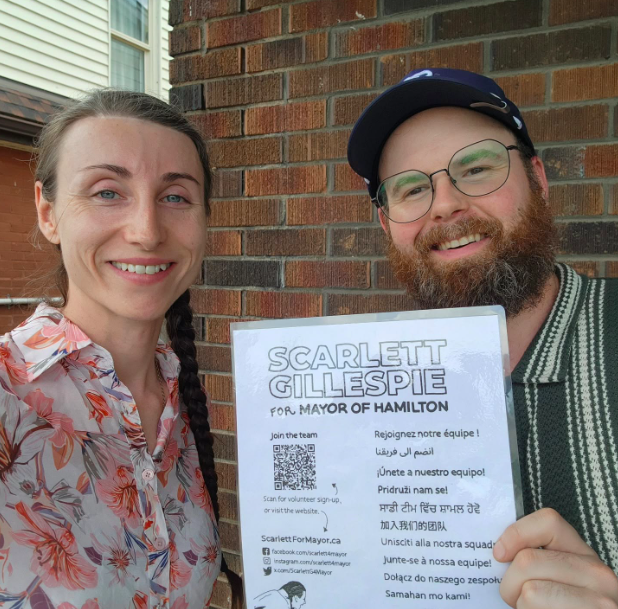 SCARLETT
GILLESPIE
FOR MAYOR OF HAMILTON
Join the team
Scan for volunteer sign-up,
or visit the website.
ScarlettForMayor.ca
facebook.com/scarlett4mayor
instagram.com/scarlett4mayor
x.com/ScarlettG4Mayor
Rejoignez notre équipe !
انضم الى فريقنا
¡Únete a nuestro equipo!
Pridruži nam se!
ਸਾਡੀ ਟੀਮ ਵਿੱਚ ਸ਼ਾਮਲ ਹੋਵੋ
加入我们的团队
Unisciti alla nostra
Junte-se à nossa equipe!
Dołącz do naszego
Samahan mo kami!